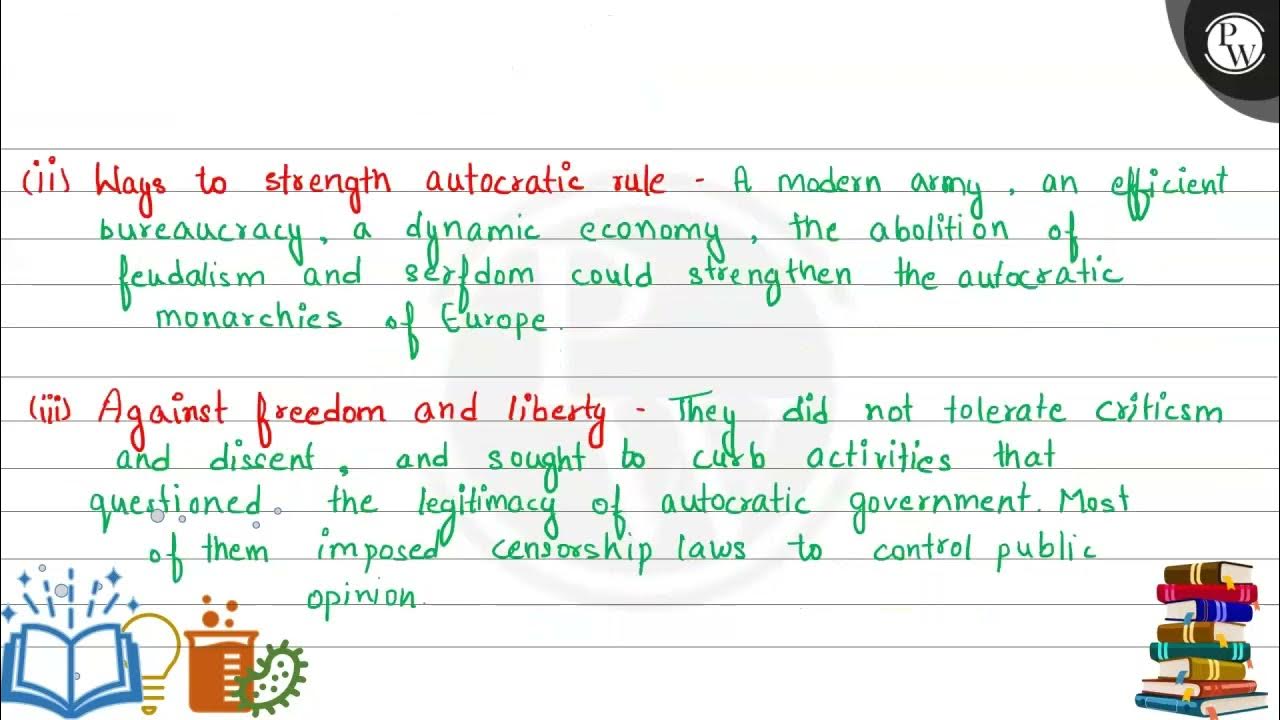 PW
(ii) Ways to strength autocratic rule - A modern army, an efficient
bureaucracy, a dynamic economy, the abolition of
feudalism and serfdom could strengthen the autocratic
monarchies of Europe.
(iii) Against freedom and liberty - They did not tolerate criticsm
and discent, and sought to curb activities that
questioned the legitimacy of autocratic government. Most
of them imposed censorship laws to control public
opinion.